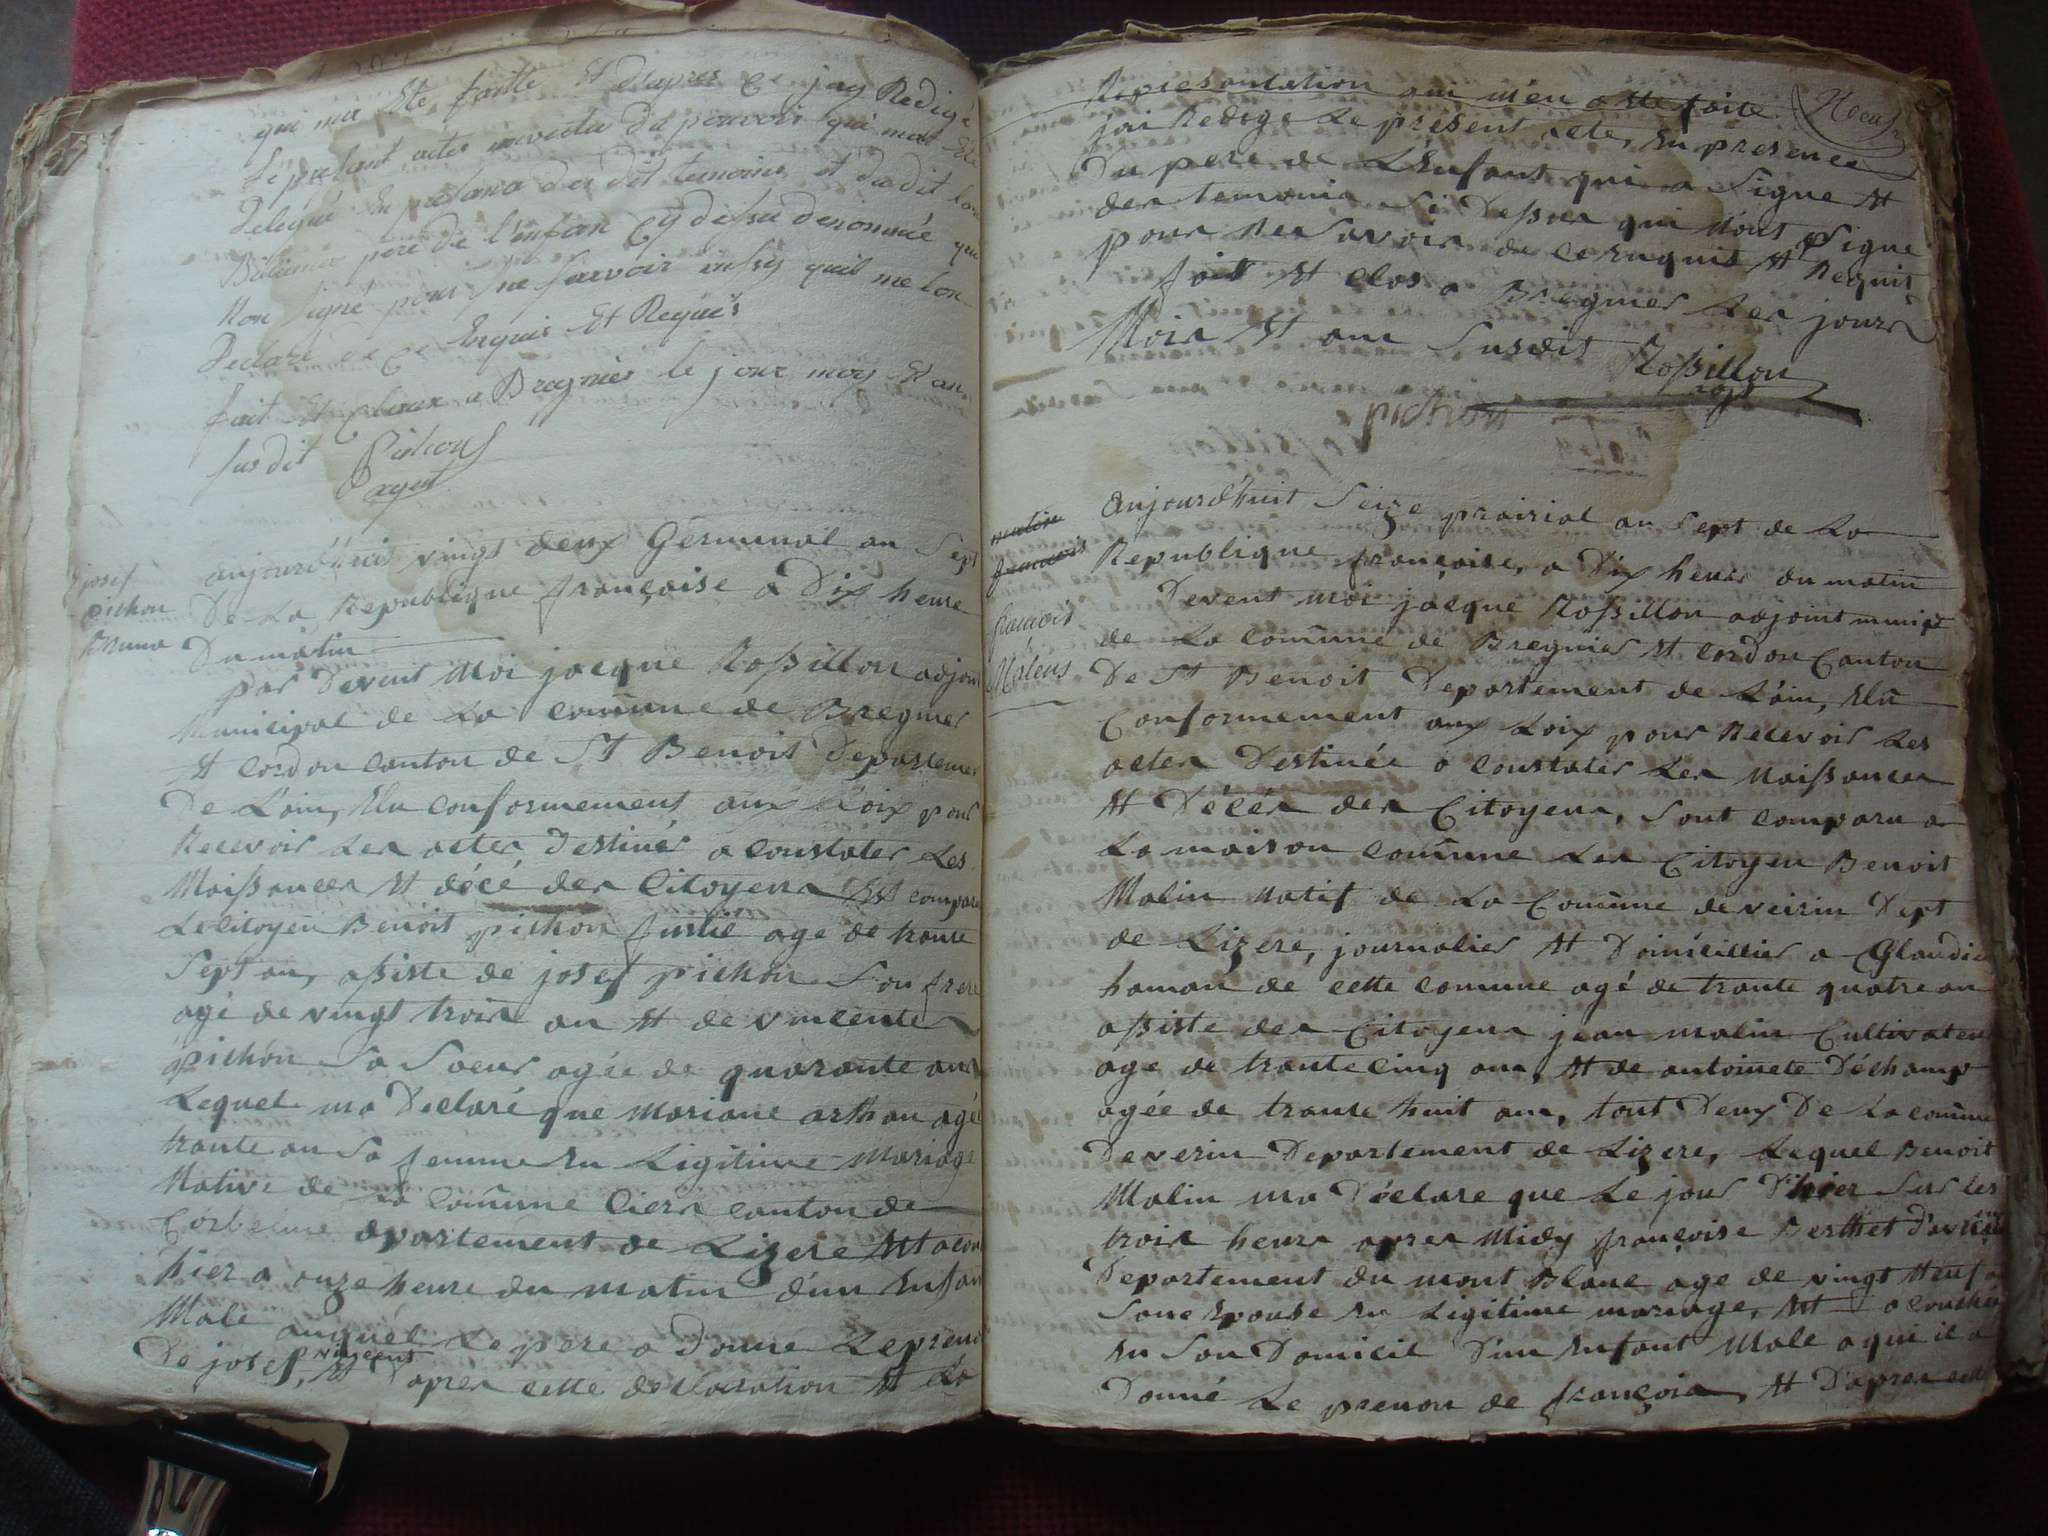 qui ma Ete faitte Et dapres Ce jay Redigé
Le presant actes en vertu du pouvoir qui mat Ete
Delegué En presance des dit temoins et du dit
pere de l'enfan Cy desus denommé qui
Non signé pour ne savoir ensy quil me lon
Declaré de Ce Enquis Et Requis
fait Et Cloux a Bregnier le jour moy Et an
susdit Pichon
agent
josef
pichon
Bruno
aujourd'huis vingt deux Germinal an Sept
De La Republique françoise a Dix heure
Du matin
par Devent Moi jacque Roßillon adjoin
Municipal de La comune de Bregnier
et cordon canton de St Benoit Departemen
De L'ain, Elu conformement aux Loix pour
Recevoir Les actes Destinés a constater Les
Naißances et décé des Citoyens Est compar
Le citoyen Benoit pichon fusilié age de trante
Sept an, aßiste de josef pichon Son frere
agé de vingt trois an et de vincente
pichon Sa Soeur agée de quarante ans
Lequel ma Declaré que Mariane arthau agé
trante an Sa femme En Legitime Mariage
Native de La Comune Ciers canton de
Corbeline departement de Lizere Et acou
hier a onze heure du matin d'un Enfan
Male auquel Le pere a Donne Le preno
De josef, vincent et Daprea cette declaration et La
Representation qui m'en a ette faite
jai Redige Le present acte, En presence
Du pere de L'Enfant qui a Signe et
des temoins Si Deßus qui N'ont Signe
pour Ne Savoir de ce enquis et Requis
fait et clos a Bregnier Les jours
Mois et an Susdit Roßillon
adjt
pichon
malin
francois
francois
Malens
Aujourd'huit Seize prairial an Sept de La
Republique françoise, a Dix heure du matin
Devent moi jacque Roßillon adjoint municipt
de La comune de Bregnier et cordon Canton
De St Benoit Departement de L'ain, Elu
Conformement aux Loix pour Recevoir Les
actes Destinée a constater Les Naißances
et Décés des Citoyens, Sont comparu a
La maison comune Les Citoyen Benoit
Malin Natif de La Comune de veirin Dept
de Lizere, journalier et Domicillier a Glandieu
haman de cette comune agé de trante quatre an
aßiste des Citoyens jean malin Cultivateur
age de trante cinq an, et de antoinete Déchamp
agée de trante huit an, tout Deux De La comune
De verin Departement de Lizere, Lequel Benoit
Malin ma Déclare que Le jour D'hier Sur les
trois heure apres Midy françoise Berthet
Departement du mont Blanc age de vingt Neuf a
Sone Epouse En Legitime mariage, Et acouchée
En Son Domicil D'un Enfant Male a qui il a
Donné Le prenon de françois, et D'apres cett